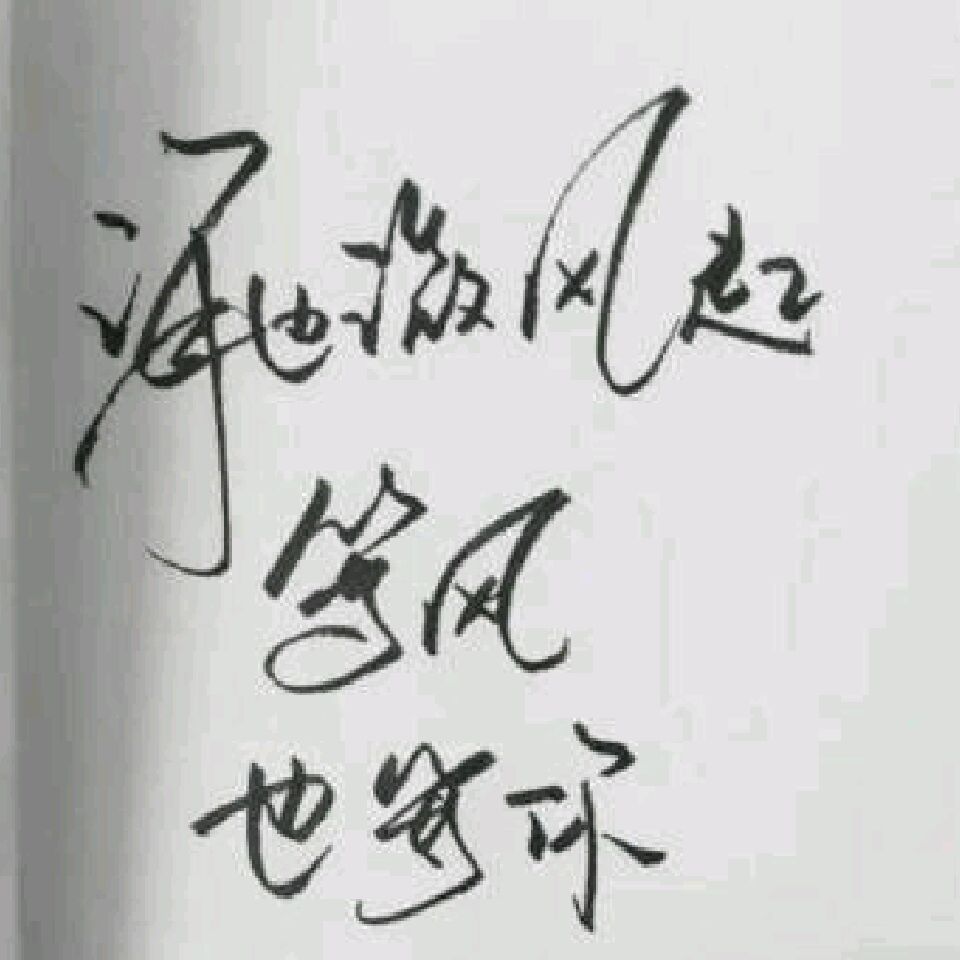 海边微风起
等风
也等你